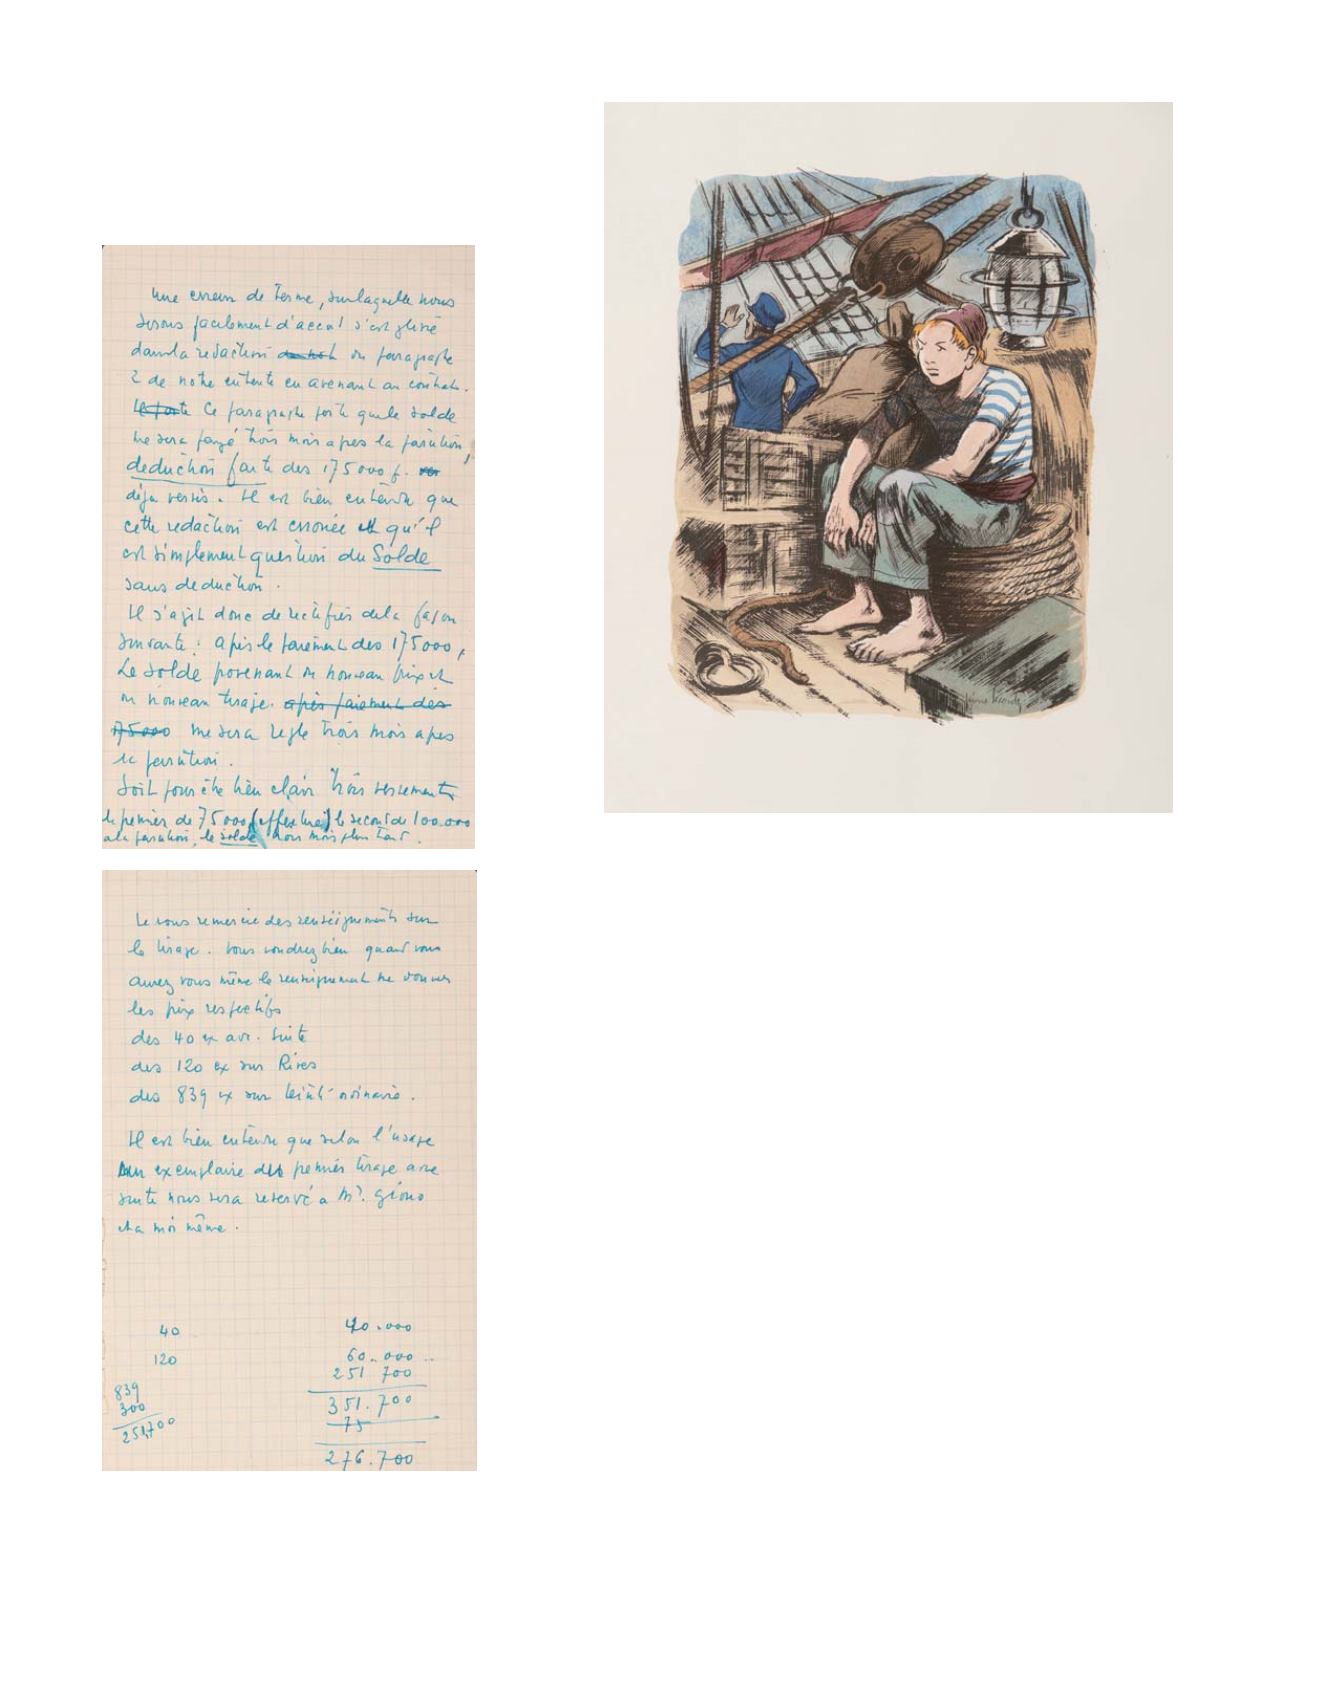 une erreur de terme, sur laquelle nous
serons facilement d'accord s'est glissé
dans la redaction du paragraphe
2 de notre entente en avenant au contrat.
Ce paragraphe porte que le solde
me sera payé trois mois apres la parution,
deduction faite des 175000 f.
déja versés. Il est bien entendu que
cette redaction est erronée et qu'il
est simplement question du Solde
sans deduction.
Il s'agit donc de rectifier de la façon
suivante : après le paiement des 175000,
Le solde provenant du nouveau prix et
du nouveau tirage. après paiement des
75000 me sera reglé trois mois apres
la parution.
Soit pour être bien clair trois versements
le premier de 75000 (effectué) le second de 100.000
a la parution, le solde trois mois plus tard.
Je vous remercie des renseignements sur
le tirage. Vous voudrez bien quand vous
aurez vous même le renseignement me donner
les prix respectifs
des 40 ex avec suite
des 120 ex sur Rives
des 839 ex sur teinté ordinaire.
Il est bien entendu que selon l'usage
un exemplaire du premier tirage avec
suite nous sera reservé a Mr. Giono
et a moi même.
40 40.000
120 60.000
251 700
839
300
251,700
351.700
75
276.700